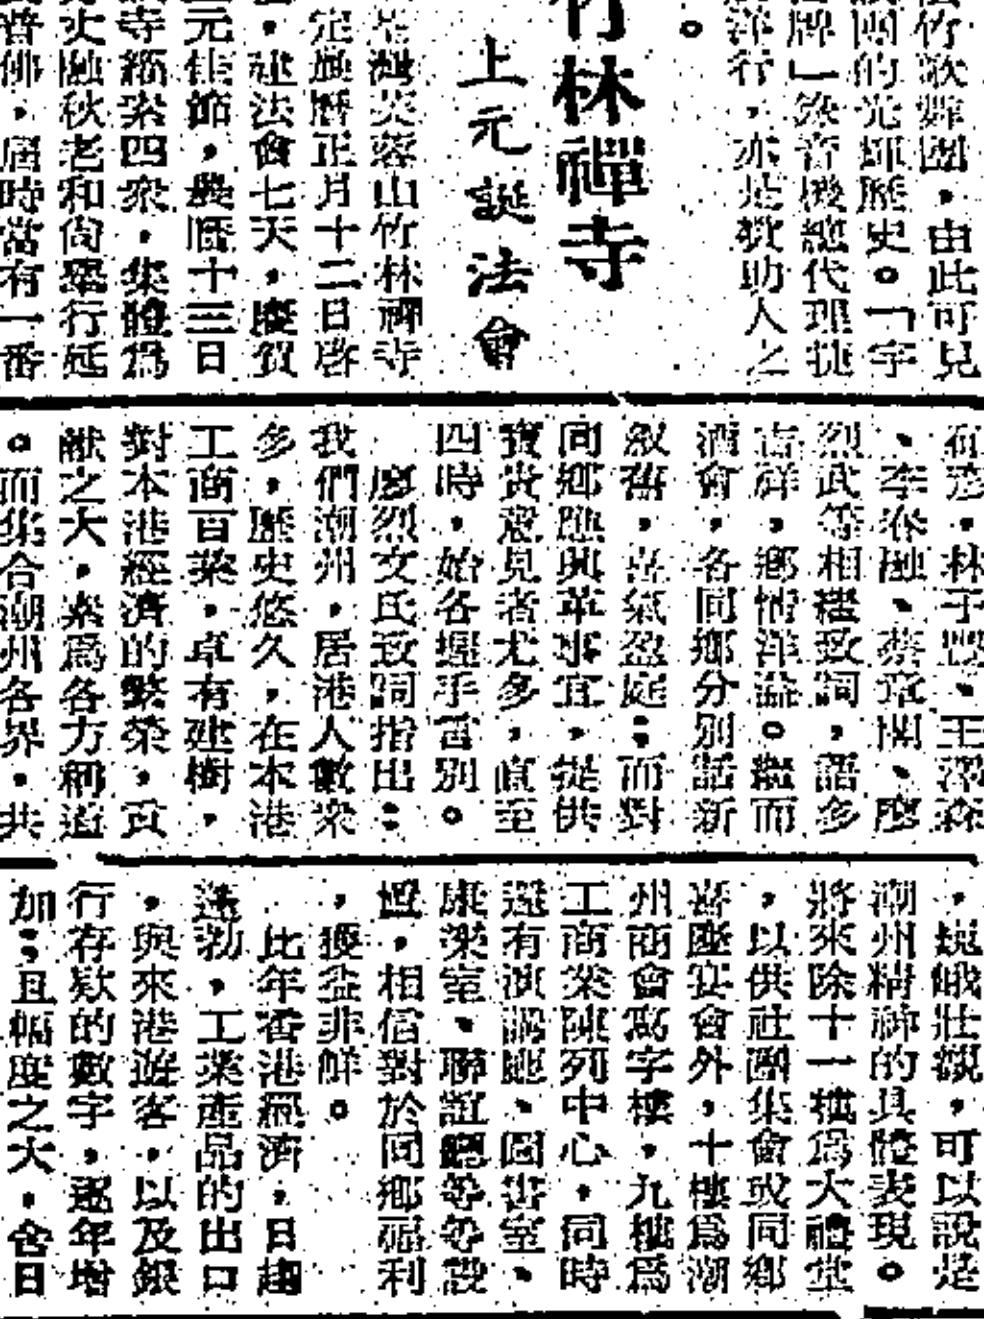 竹歌舞團，由此可見
團的光輝歷史。「字
牌」錄音機總代理捷
洋行，亦是救助人之
。
竹林禪寺
上元誕法會
芙蓉山竹林禪寺
定農曆正月十二日啓
，建法會七天，慶賀
元佳節，農曆十三日
寺緇素四衆，集體爲
融秋老和尙舉行延
普佛，屆時當有一番
，林子豐、王澤森
、李春融、蔡章閣、廖
烈武等相繼致詞，語多
吉祥，鄉情洋溢。繼而
酒會，各同鄉分別話新
叙舊，喜氣盈庭；而對
同鄉應興革事宜，提供
寶貴意見者尤多，直至
四時，始各握手言別。
廖烈文氏致詞指出：
我們潮州，居港人數衆
多，歷史悠久，在本港
工商百業，卓有建樹，
對本港經濟的繁榮，貢
献之大，素爲各方稱道
。而集合潮州各界，共
，巍峨壯觀，可以說是
潮州精神的具體表現。
將來除十一樓爲大禮堂
，以供社團集會或同鄉
喜慶宴會外，十樓爲潮
州商會寫字樓，九樓爲
工商業陳列中心，同時
還有演講廳、圖書室、
康樂室、聯誼廳等等設
置，相信對於同鄉福利
，獲益非鮮。
比年香港經濟，日趨
蓬勃，工業產品的出口
，與來港遊客，以及銀
行存欵的數字，逐年增
加；且幅度之大，舍日